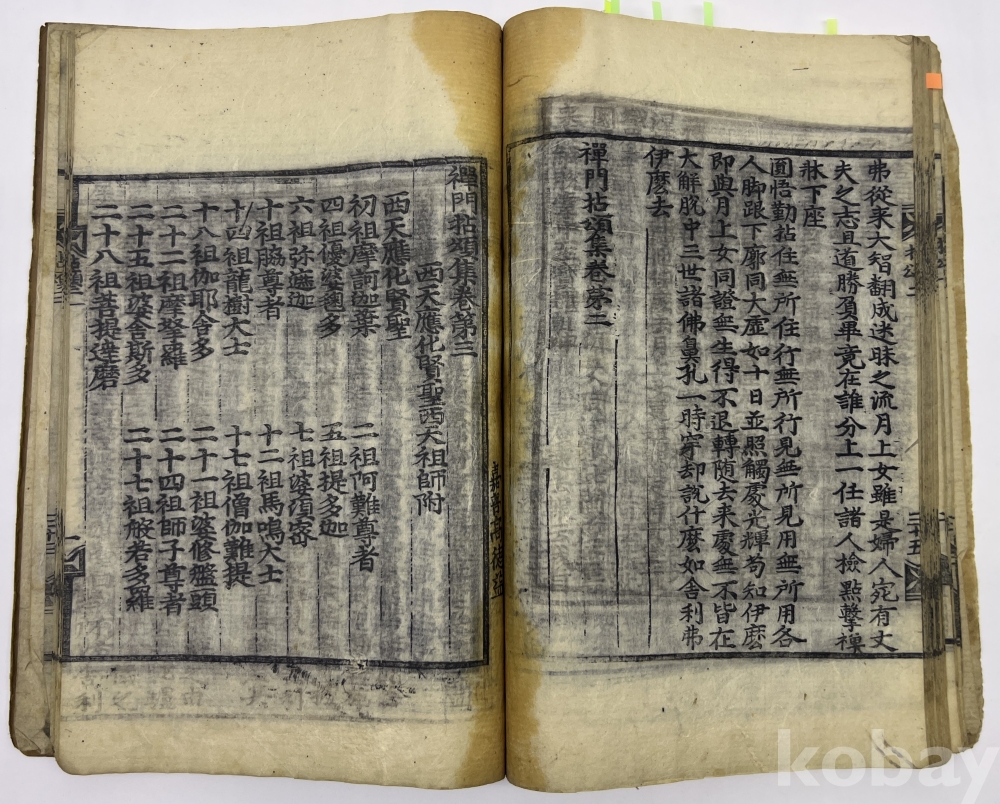 弗從来大智翻成迷昧之流月上女雖是婦人宛有丈
夫之志且道勝負畢竟在誰分上一任諸人撿點擊禪
牀下座
圓悟勤拈住無所住行無所行見無所見用無所用各
人脚跟下廓同大虛如十日並照觸處光輝苟知伊麽
即與月上女同證無生得不退轉随去来處無不皆在
大解脫中三世諸佛鼻孔一時穿却說什麽如舍利弗
伊麽去
禪門拈頌集卷第二
禪門拈頌集卷第三
西天應化賢聖西天祖師附
西天應化賢聖
初祖摩訶伽葉 二祖阿難尊者
四祖優婆毱多 五祖提多迦
六祖弥遮迦 七祖婆須蜜
十祖脇尊者 十二祖馬鳴大士
十四祖龍樹大士 十七祖僧伽難提
十八祖伽耶舍多 二十一祖婆修盤頭
二十二祖摩拏羅 二十四祖師子尊者
二十五祖婆舍斯多 二十七祖般若多羅
二十八祖菩提達磨
kobay